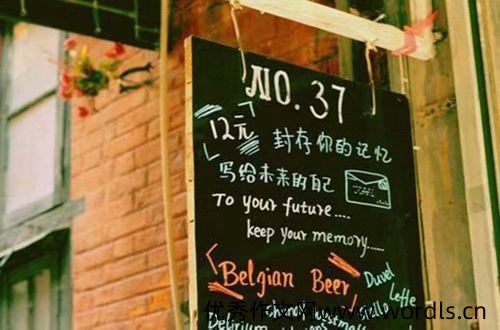 NO.37
12元 封存你的记忆
写给未来的自己
To your future....
keep your memory.....
Belgian Beer
Duvel
Leffe
Delirium
优秀作文网www.wordls.cn